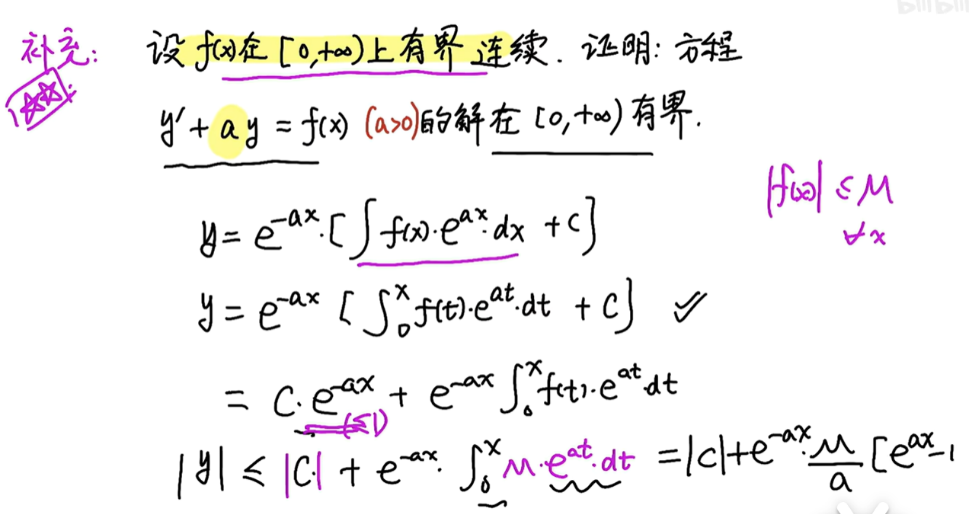 bilibili
补充: 设f(x)在[0,+∞)上有界连续. 证明: 方程
☆☆:
y′+ay=f(x) (a>0)的解在[0,+∞)有界.
|f(x)|≤M
∀x
y=e^{-ax}·[∫f(x)·e^{ax}·dx+C]
y=e^{-ax}[∫_0^x f(t)·e^{at}·dt+C] ✓
=C·e^{-ax}+e^{-ax}∫_0^x f(t)·e^{at}·dt
(≤1)
|y|≤|C|+e^{-ax}·∫_0^x M·e^{at}·dt=|C|+e^{-ax}·\frac{M}{a}[e^{ax}-1